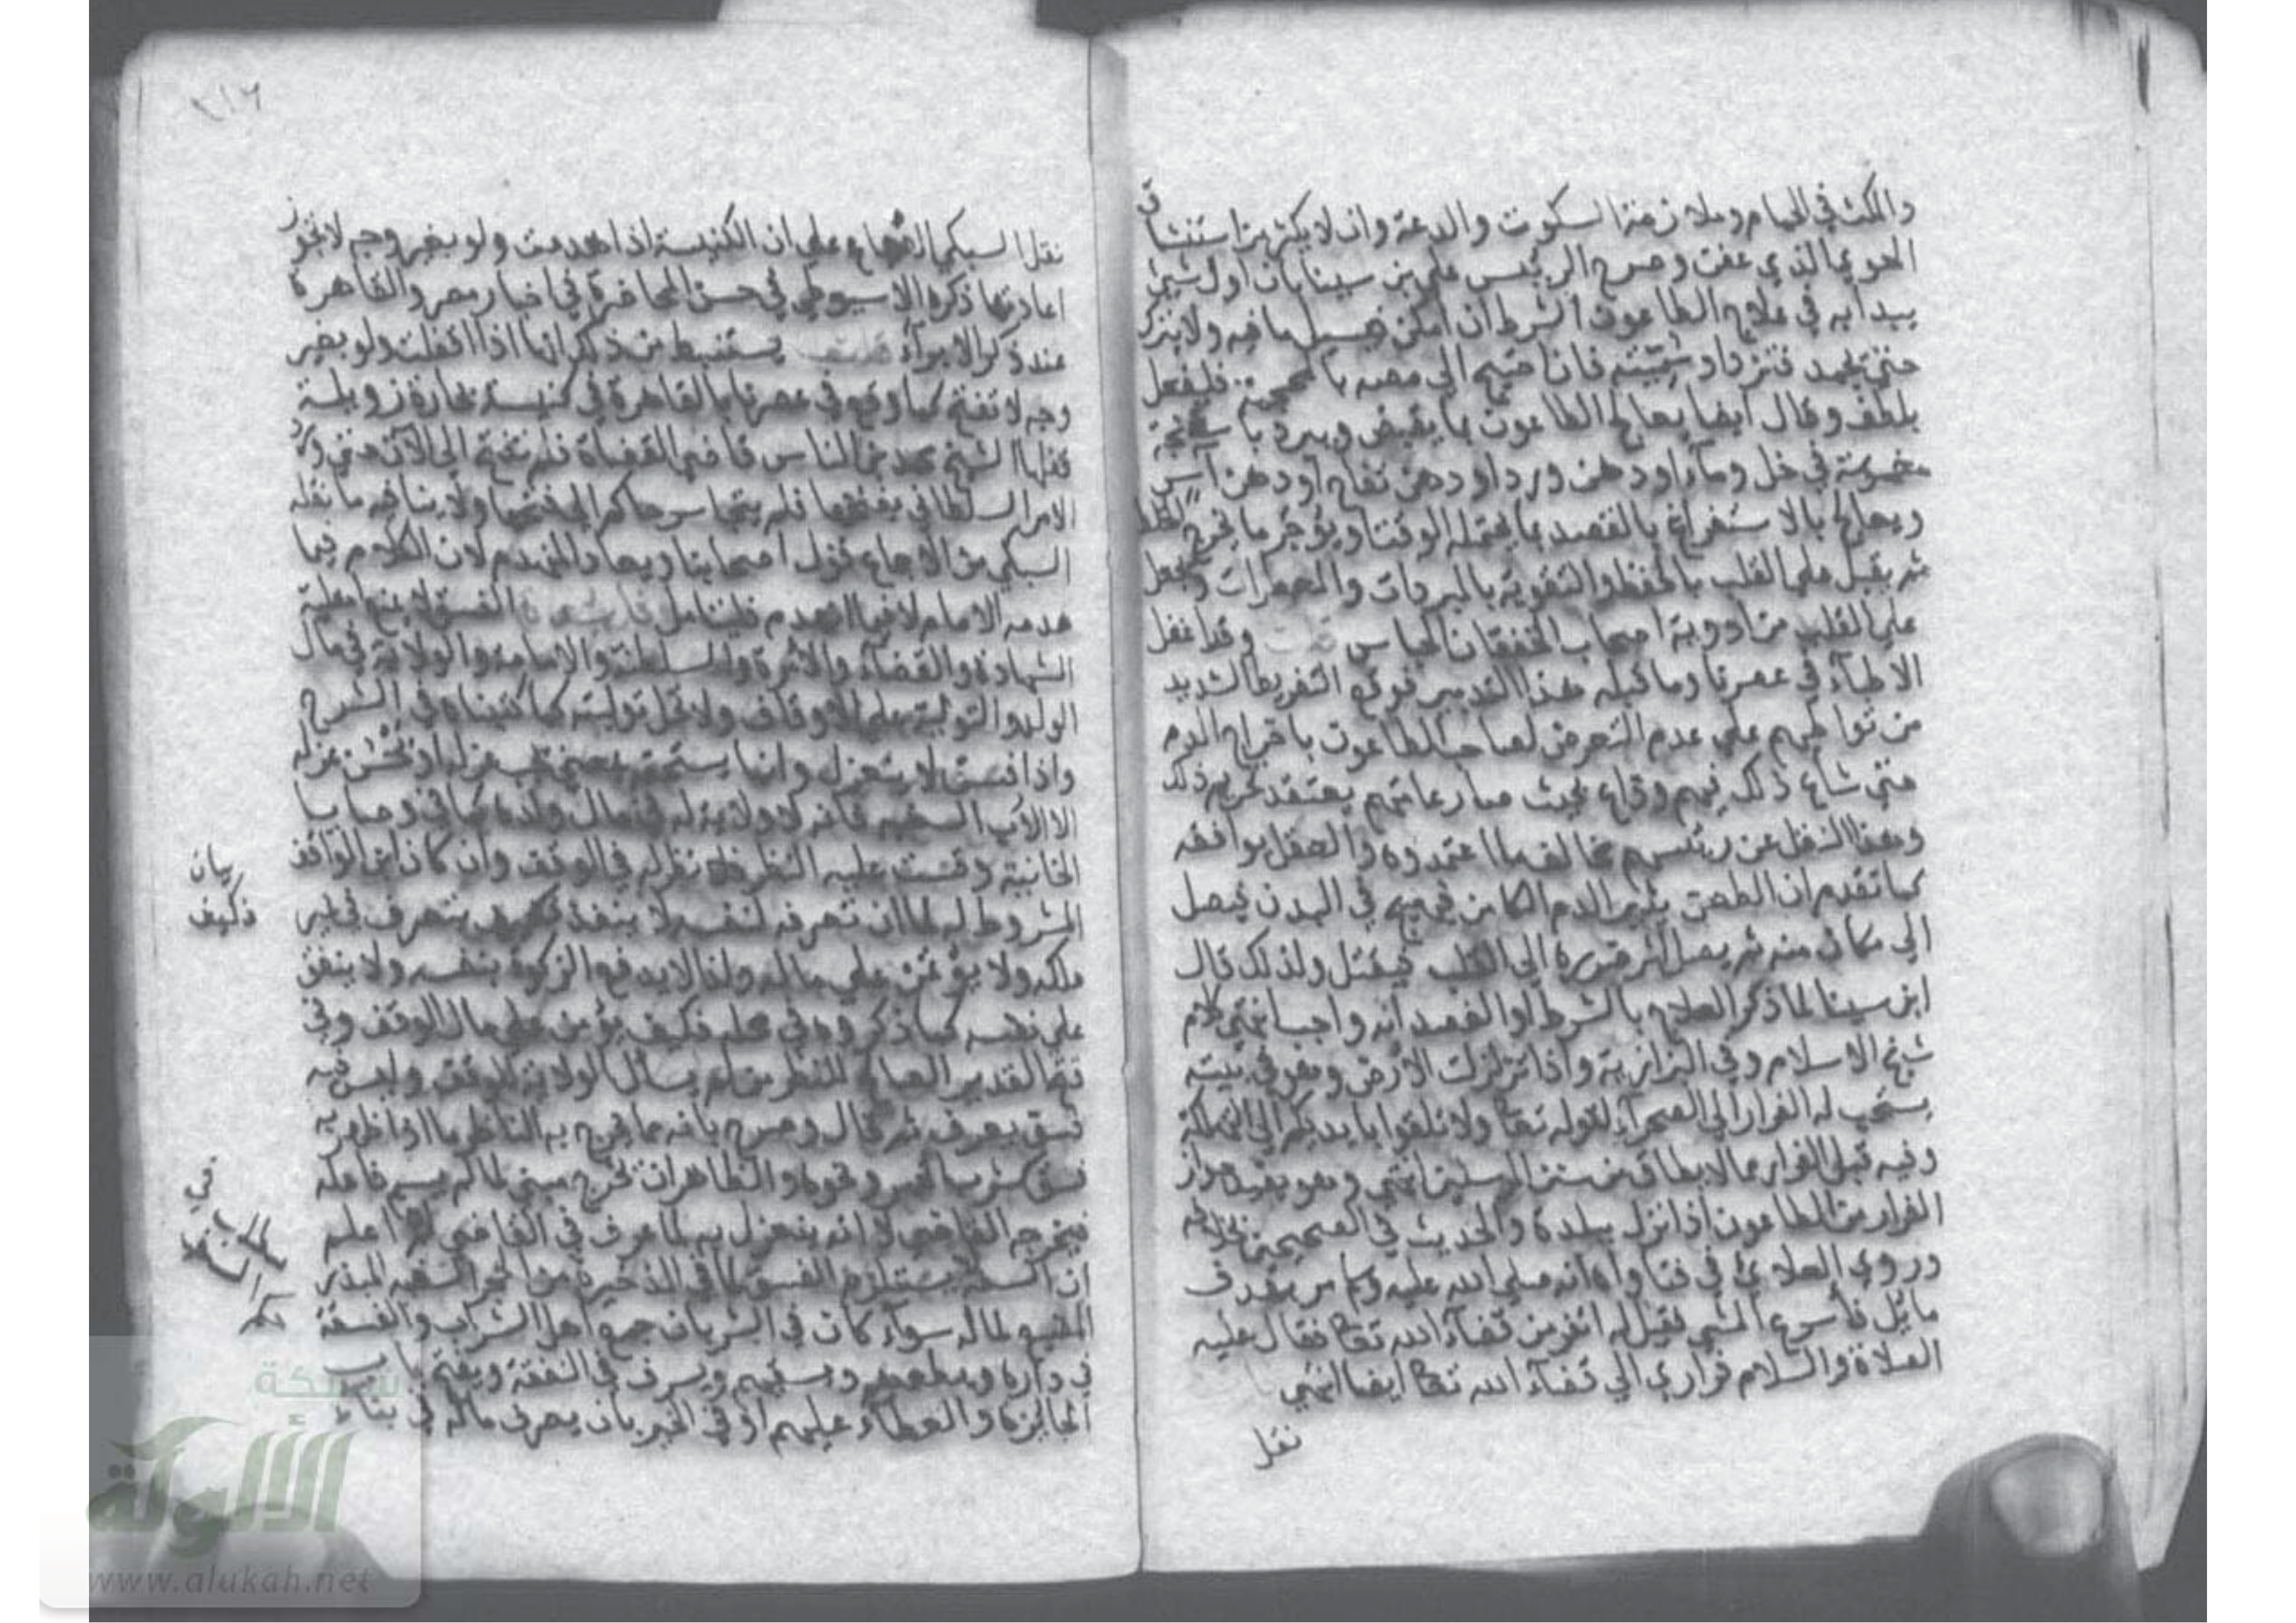 والمكث في الحمام وملازمة السكون والدعة وان لا يكثر من استنشاق
الهوي الذي عفن وصرح الرئيس علي بن سينا بان اول شيئ
يبدا به في علاج الطاعون الشرط ان امكن فيسيل ما فيه ولا يترك
حتي يجمد فتزداد سميته فان احتيج الى مصه بالمحجمة فليفعل
بلطف وقال ايضا يعالج الطاعون بما يقبض ويبرد باسفنجة
مغموسة في خل وماء او دهن ورد او دهن تفاح او دهن آس
ويعالج بالاستفراغ بالفصد بما يحتمله الوقت او يؤخر ما يخرج الخلط
ثم يقبل على القلب بالحفظ والتقوية بالمبردات والعطرات ويجعل
علي القلب من ادوية اصحاب الخفقان الحار قلت وقد اغفل
الاطباء في عصرنا وما قبله هذا التدبير فوقع التفريط الشديد
من تواطيهم علي عدم التعرض لصاحب الطاعون باخراج الدم
حتي شاع ذلك فيهم وذاع بحيث صار عامتهم يعتقد تحريم ذلك
وهذا النقل عن رئيسهم يخالف ما اعتمدوه والعقل يوافقه
كما تقدم ان الطعن يثير الدم الكامن فيهيج في البدن فيصل
الى مكان منه ثم يصل اثر ضرره الى القلب فيقتل ولذلك قال
ابن سينا لما ذكر العلاج بالشرط او الفصد انه واجب انتهي كلام
شيخ الاسلام وفي البزازية واذا تزلزلت الارض وهو في بيته
يستحب له الفرار الى الصحراء لقوله تعا ولا تلقوا بايديكم الى التهلكة
وفيه قيل الفرار مما لا يطاق من سنن المرسلين انتهي وهو يفيد جواز
الفرار من الطاعون اذا نزل ببلدة والحديث في الصحيحين بخلافه
وروي العلائي في فتاواه انه صلي الله عليه وسلم مر بهدف
مائل فاسرع المشي فقيل له اتفر من قضاء الله تعا فقال عليه
الصلاة والسلام فراري الي قضاء الله تعا ايضا انتهي
نقل
٢١٦
نقل السبكي الاجماع علي ان الكنيسة اذا هدمت ولو بغير وجه لا تجوز
اعادتها ذكره الاسيوطي في حسن المحاضرة في اخبار مصر والقاهرة
عند ذكر الامراء قلت يستنبط من ذلك انها اذا اقفلت ولو بغير
وجه لا تفتح كما وقع في عصرنا بالقاهرة في كنيسة بحارة زويلة
قفلها الشيخ محمد بن الياس قاضي القضاة فلم تفتح الى الآن حتي ورد
الامر السلطاني بفتحها فلم يتجاسر حاكم الي فتحها ولا ينافيه ما نقله
السبكي من الاجماع قول اصحابنا ويعاد المنهدم لان الكلام فيما
هدمه الامام لا فيما انهدم فليتامل الفسق لا يمنع اهلية
الشهادة والقضاء والامرة والسلطنة والامامة والولاية في مال
الولد والتولية علي الاوقاف ولا تحل توليته كما كتبناه في الشرح
واذا فسق لا ينعزل وانما يستحقه بمعني يجب عزله او يحسن عزله
الا الاب السفيه فانه لا ولاية له في مال ولده كما في وصايا
الخانية وقست عليه النظر فلا نظر له في الوقف وان كان ابن الواقف
المشروط له لما ان تصرفه لنفسه لا ينفذ فكيف يتصرف في غير
ملكه ولا يؤتمن علي ماله ولذا لا يدفع الزكوة بنفسه ولا ينفق
علي نفسه كما ذكروه في محله فكيف يؤتمن علي مال الوقف وفي
فتح القدير الصالح للنظر من لم يسال الولاية للوقف وليس فيه
فسق يعرف ثم قال وصرح بانه مما يخرج به الناظر ما اذا ظهر به
فسق كشرب الخمر ونحوه والظاهر ان يخرج مبني لما لم يسم فاعله
فيخرجه القاضي لا انه ينعزل به لما عرف في القاضي اعلم
ان السفه يستلزم الفسق لما في الذخيرة من الحجر السفيه المبذر
المضيع لماله سواء كان في الشر بان جمع اهل الشراب والفسقة
في داره ويطعمهم ويسقيهم ويسرف في النفقة ويفتح باب
الجائزة والعطاء عليهم او في الخير بان يصرف ماله في بناء
مطلب في